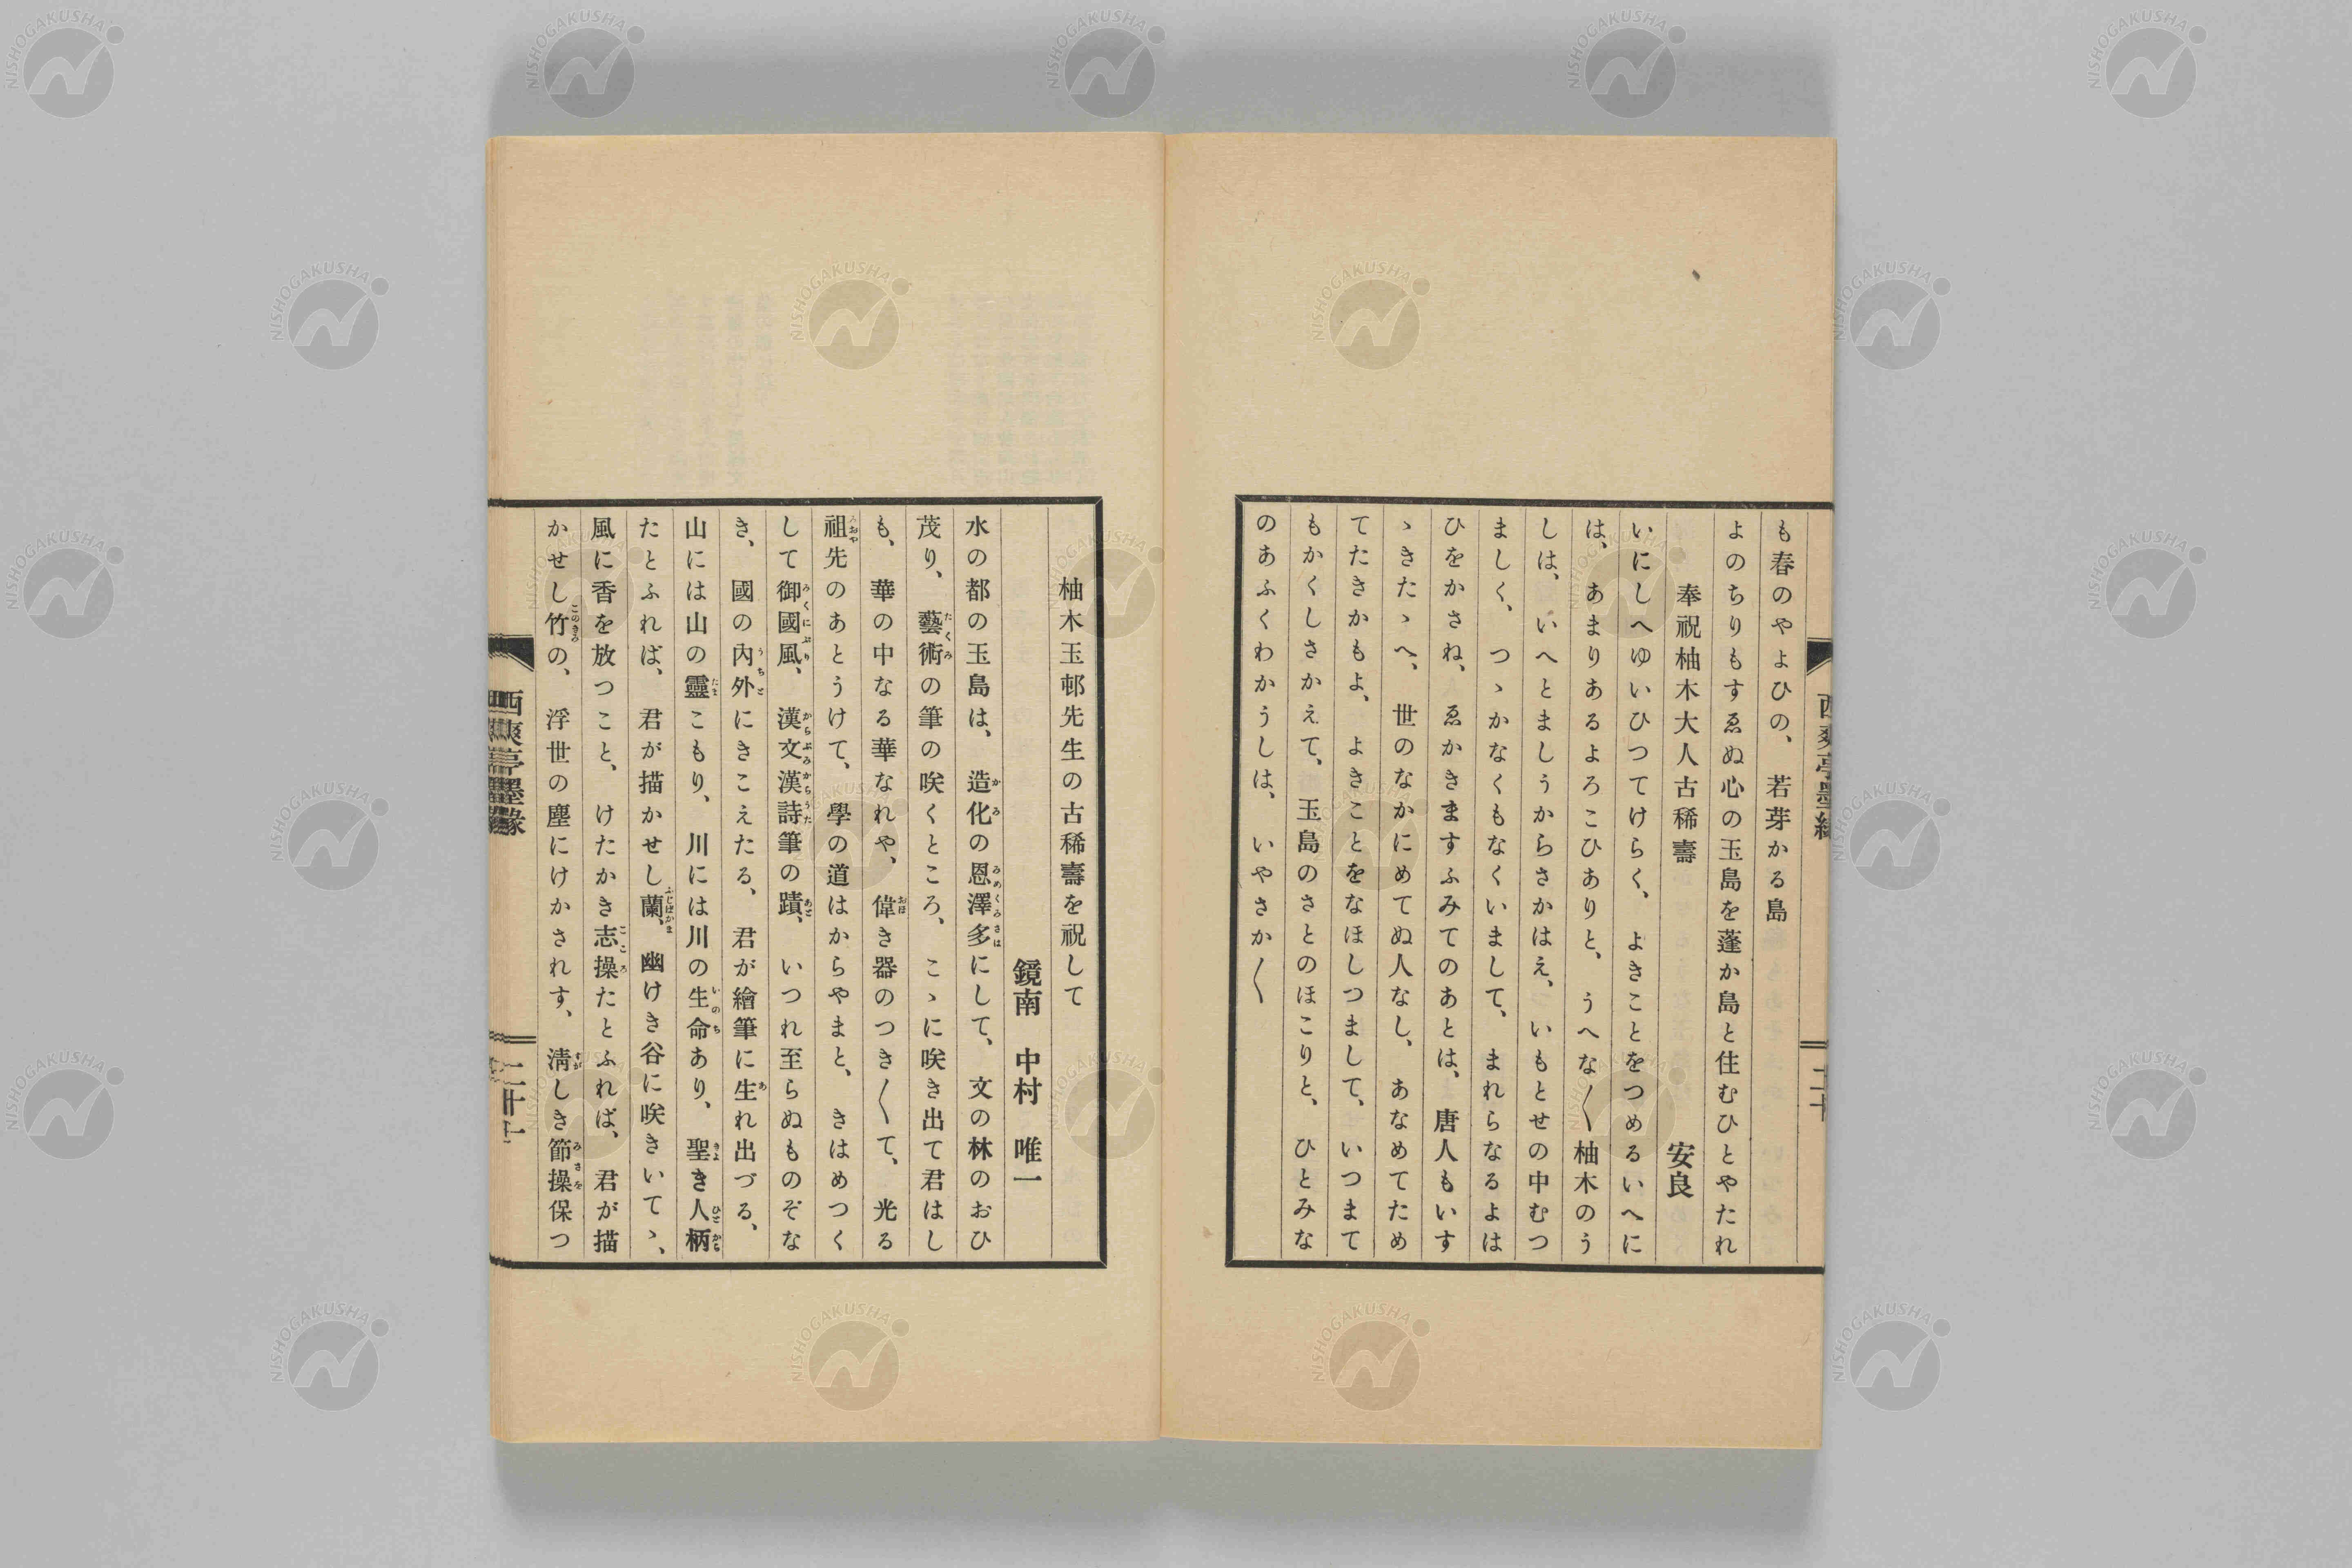 も春のやよひの、若芽かる島
よのちりもすゑぬ心の玉島を蓬か島と住むひとやたれ
奉祝柚木大人古稀壽
安良
いにしへゆいひつてけらく、よきことをつめるいへに
は、あまりあるよろこひありと、うへな〱柚木のう
しは、いへとましうからさかはえ、いもとせの中むつ
ましく、つゝかなくもなくいまして、まれらなるよは
ひをかさね、ゑかきますふみてのあとは、唐人もいす
ゝきたゝへ、世のなかにめてぬ人なし、あなめてため
てたきかもよ、よきことをなほしつまして、いつまて
もかくしさかえて、玉島のさとのほこりと、ひとみな
のあふくわかうしは、いやさか〱
柚木玉邨先生の古稀壽を祝して
鏡南 中村 唯一
水の都の玉島は、造化の恩澤多にして、文の林のおひ
茂り、藝術の筆の咲くところ、こゝに咲き出て君はし
も、華の中なる華なれや、偉き器のつき〱て、光る
祖先のあとうけて、學の道はからやまと、きはめつく
して御國風、漢文漢詩筆の蹟、いつれ至らぬものぞな
き、國の內外にきこえたる、君が繪筆に生れ出づる、
山には山の靈こもり、川には川の生命あり、聖き人柄
たとふれば、君が描かせし蘭、幽けき谷に咲きいてゝ、
風に香を放つこと、けたかき志操たとふれば、君が描
かせし竹の、浮世の塵にけかされす、淸しき節操保つ
西爽亭墨緣
NISHOGAKUSHA